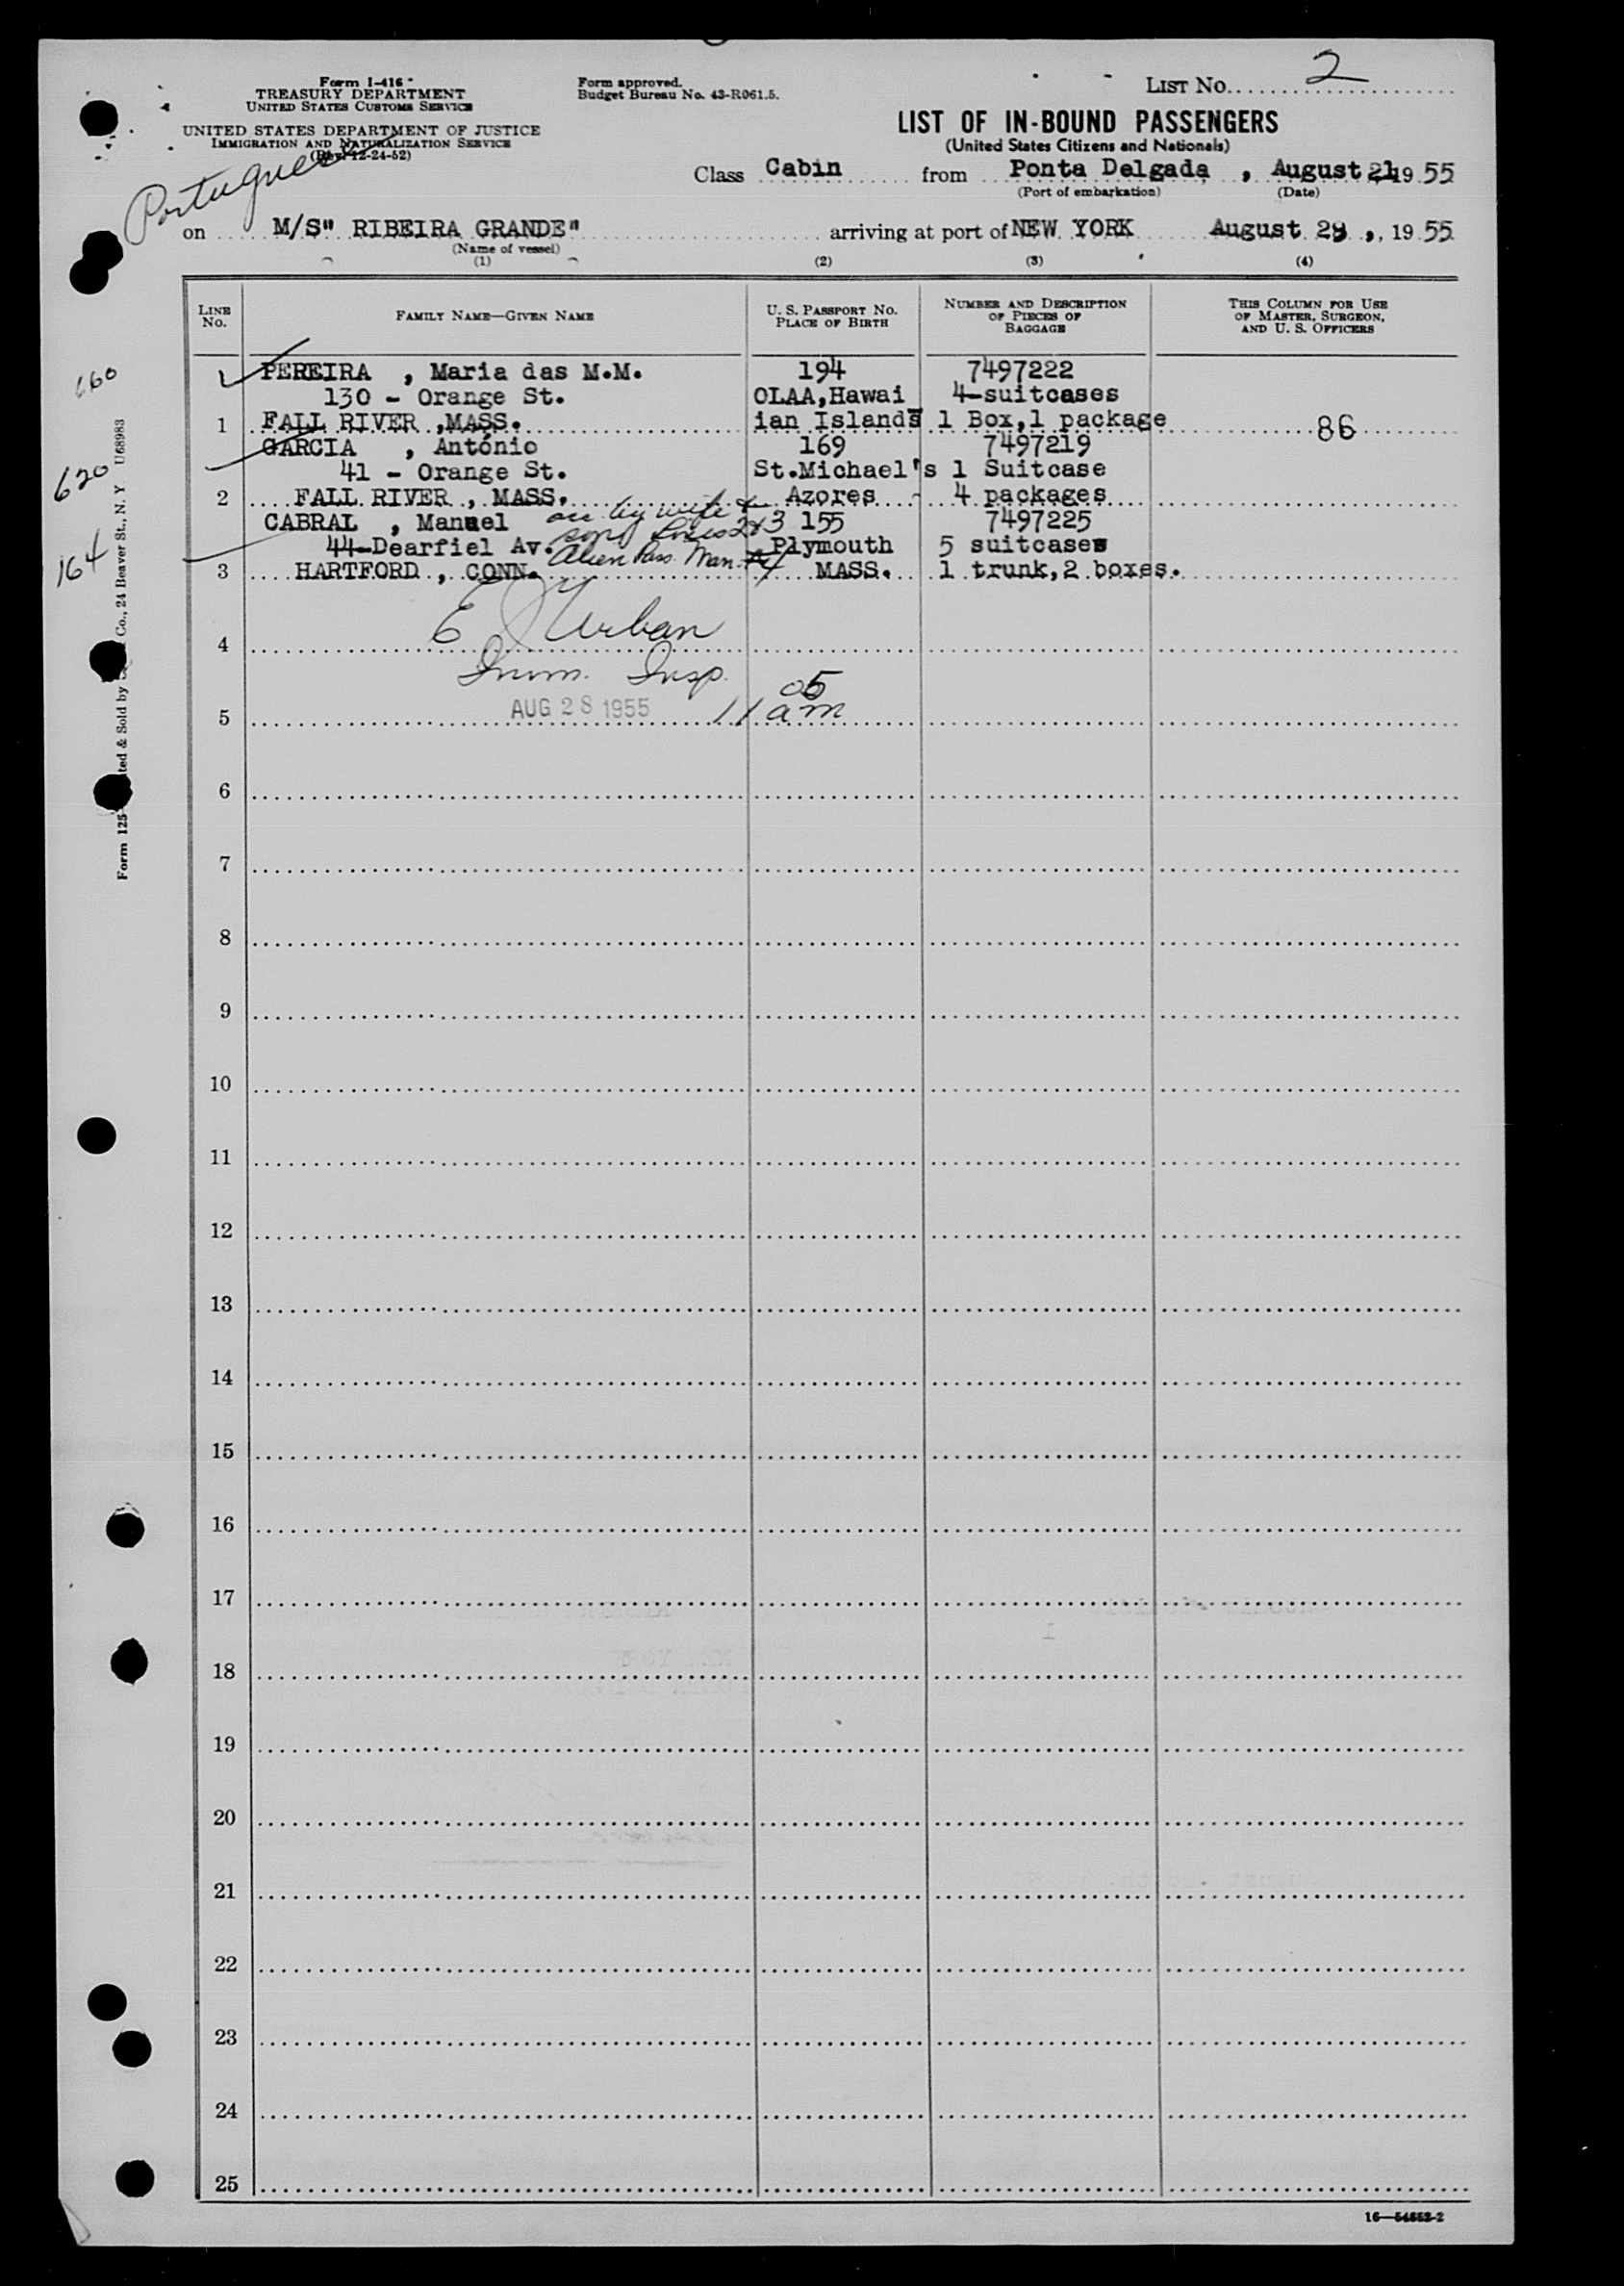 Form I-416
TREASURY DEPARTMENT
UNITED STATES CUSTOMS SERVICE
UNITED STATES DEPARTMENT OF JUSTICE
IMMIGRATION AND NATURALIZATION SERVICE
(Rev. 12-24-52)
Portuguese
Form approved.
Budget Bureau No. 43-R061.5.
LIST No. 2
LIST OF IN-BOUND PASSENGERS
(United States Citizens and Nationals)
Class Cabin from Ponta Delgada , August 21 19 55
(Port of embarkation) (Date)
on M/S" RIBEIRA GRANDE" arriving at port of NEW YORK August 28 , , 19 55
(Name of vessel)
(1) (2) (3) (4)
LINE No. FAMILY NAME—GIVEN NAME U. S. PASSPORT No. PLACE OF BIRTH NUMBER AND DESCRIPTION OF PIECES OF BAGGAGE THIS COLUMN FOR USE OF MASTER, SURGEON, AND U. S. OFFICERS
660
1 PEREIRA , Maria das M.M. 194 7497222
130 - Orange St. OLAA,Hawai 4-suitcases
1 FALL RIVER ,MASS. ian Islands 1 Box,1 package 86
GARCIA , António 169 7497219
620 41 - Orange St. St.Michael's 1 Suitcase
2 FALL RIVER , MASS. Azores - 4 packages
CABRAL , Manuel acc by wife & 155 7497225
164 44-Dearfiel Av. son Lines 2&3 Plymouth 5 suitcases
3 HARTFORD , CONN. Alien Pass. Man. MASS. 1 trunk,2 boxes.
4 E J Urban
Imm. Insp.
5 AUG 28 1955 11 05 am
6
7
8
9
10
11
12
13
14
15
16
17
18
19
20
21
22
23
24
25
Form 125 Co., 24 Beaver St., N. Y U68983
16—54652-2